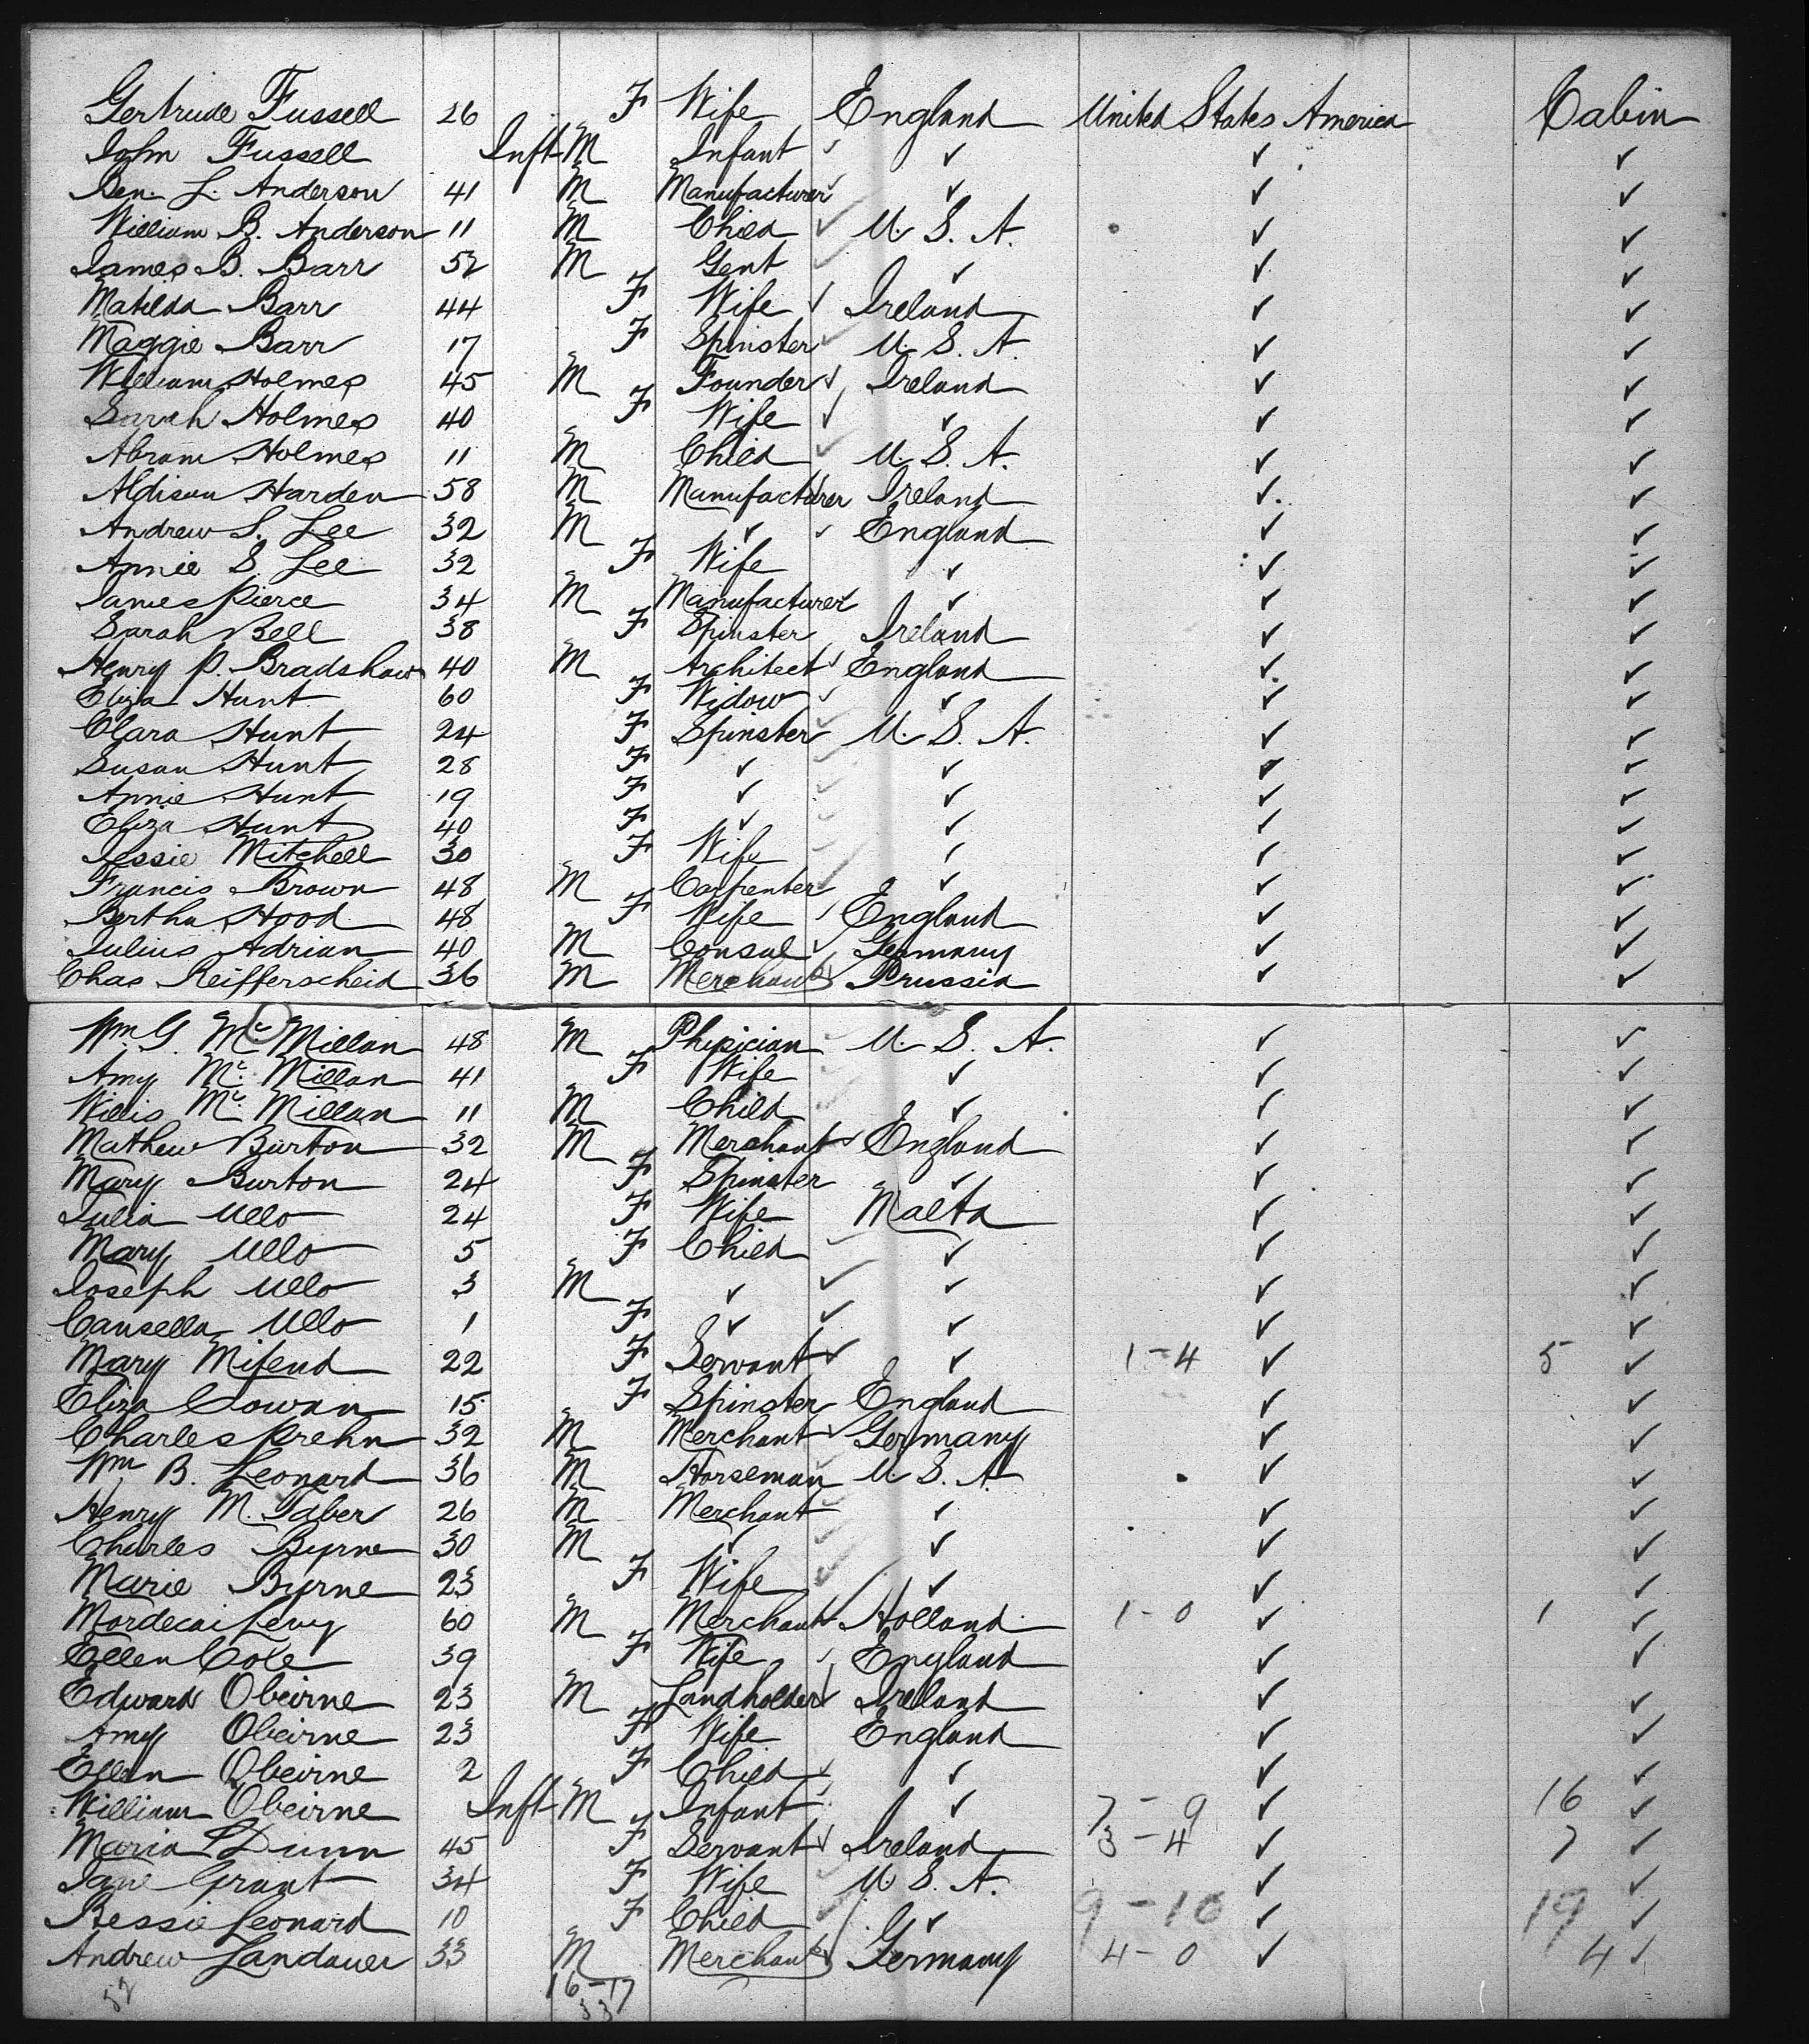 Gertrude Fussell 26 F Wife England United States America Cabin
John Fussell Inft M Infant ✓ ✓ ✓ ✓
Ben. L. Anderson 41 M Manufacturer ✓ ✓ ✓ ✓
William B. Anderson 11 M Child ✓ U. S. A. ✓ ✓
James B. Barr 52 M Gent ✓ ✓ ✓ ✓
Matilda Barr 44 F Wife ✓ Ireland ✓ ✓
Maggie Barr 17 F Spinster ✓ U. S. A. ✓ ✓
William Holmes 45 M Founder ✓ Ireland ✓ ✓
Sarah Holmes 40 F Wife ✓ ✓ ✓ ✓
Abram Holmes 11 M Child ✓ U. S. A. ✓ ✓
Aldison Harden 58 M Manufacturer Ireland ✓ ✓
Andrew S. Lee 32 M ✓ ✓ England ✓ ✓
Annie S. Lee 32 F Wife ✓ ✓ ✓
James Pierce 34 M Manufacturer ✓ ✓ ✓
Sarah Bell 38 F Spinster Ireland ✓ ✓
Henry P. Bradshaw 40 M Architect ✓ England ✓ ✓
Eliza Hunt 60 F Widow ✓ ✓ ✓ ✓
Clara Hunt 24 F Spinster ✓ U. S. A. ✓ ✓
Susan Hunt 28 F ✓ ✓ ✓ ✓ ✓
Annie Hunt 19 F ✓ ✓ ✓ ✓ ✓
Eliza Hunt 40 F ✓ ✓ ✓ ✓ ✓
Jessie Mitchell 30 F Wife ✓ ✓ ✓ ✓
Francis Brown 48 M Carpenter ✓ ✓ ✓ ✓
Bertha Hood 48 F Wife ✓ England ✓ ✓
Julius Adrian 40 M Consul ✓ Germany ✓ ✓
Chas Reifferscheid 36 M Merchant Prussia ✓ ✓
Wm. G. Mc Millan 48 M Physician ✓ U. S. A. ✓ ✓
Amy Mc Millan 41 F Wife ✓ ✓ ✓ ✓
Willis Mc Millan 11 M Child ✓ ✓ ✓ ✓
Mathew Burton 32 M Merchant ✓ England ✓ ✓
Mary Burton 24 F Spinster ✓ ✓ ✓
Julia Ullo 24 F Wife Malta ✓ ✓
Mary Ullo 5 F Child ✓ ✓ ✓ ✓
Joseph Ullo 3 M ✓ ✓ ✓ ✓ ✓
Cansella Ullo 1 F ✓ ✓ ✓ ✓ ✓
Mary Mifend 22 F Servant ✓ ✓ 1-4 ✓ 5 ✓
Eliza Cowan 15 F Spinster England ✓ ✓
Charles Prehn 32 M Merchant ✓ Germany ✓ ✓
Wm B. Leonard 36 M Horseman ✓ U. S. A. ✓ ✓
Henry M. Taber 26 M Merchant ✓ ✓ ✓ ✓
Charles Byrne 30 M ✓ ✓ ✓ ✓ ✓
Marie Byrne 23 F Wife ✓ ✓ ✓ ✓
Mordecai Levy 60 M Merchant ✓ Holland 1-0 ✓ 1 ✓
Ellen Cole 39 F Wife ✓ England ✓ ✓
Edward Obeirne 23 M Landholder ✓ Ireland ✓ ✓
Amy Obeirne 23 F Wife England ✓ ✓
Ellen Obeirne 2 F Child ✓ ✓ ✓ ✓
William Obeirne Inft M Infant ✓ ✓ 7-9 ✓ 16 ✓
Maria Dunn 45 F Servant ✓ Ireland 3-4 ✓ 7 ✓
Jane Grant 34 F Wife ✓ U. S. A. ✓ ✓
Bessie Leonard 10 F Child ✓ ✓ 9-10 ✓ 19 ✓
Andrew Landauer 33 M Merchant Germany 4-0 ✓ 4 ✓
52 16-17
33